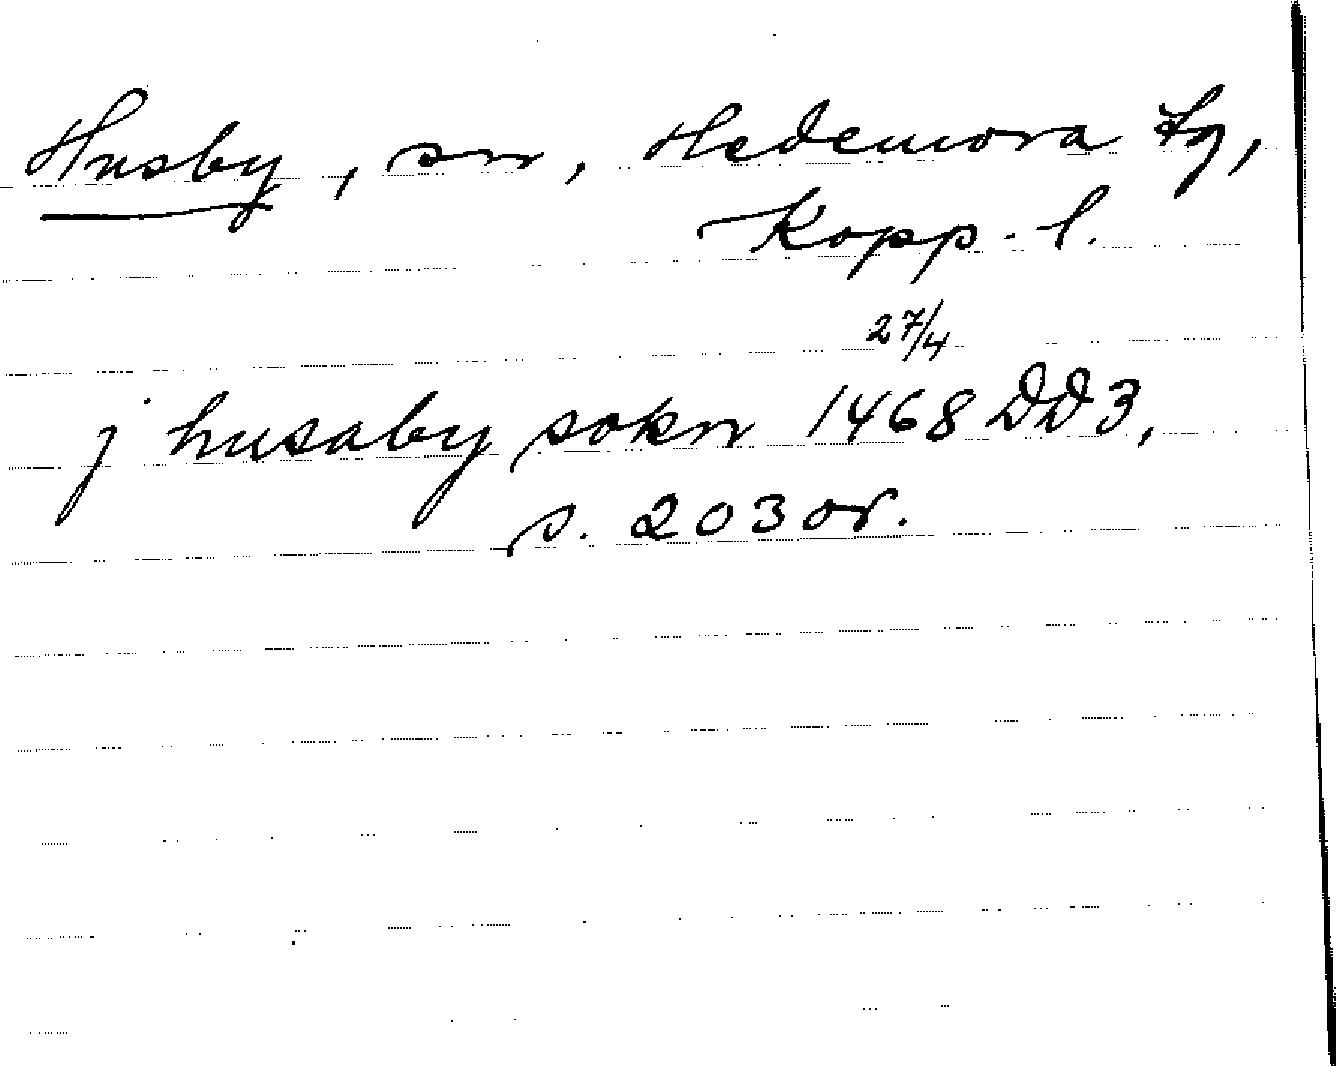 Husby, sn, Hedemora tg,
Kopp. l.
27/4
j husaby sokn 1468 DD3,
s. 203 or.